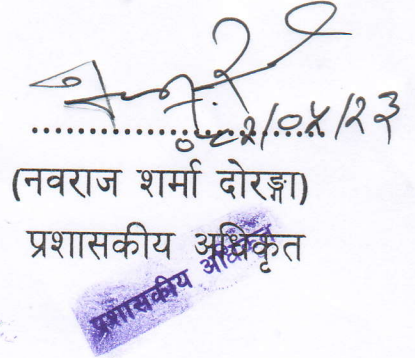 (नवराज शर्मा दोरङ्गा)
प्रशासकीय अधिकृत
प्रशासकीय अधिकृत